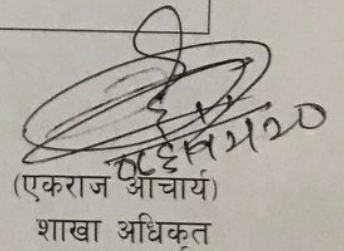 (एकराज आचार्य)
शाखा अधिकृत